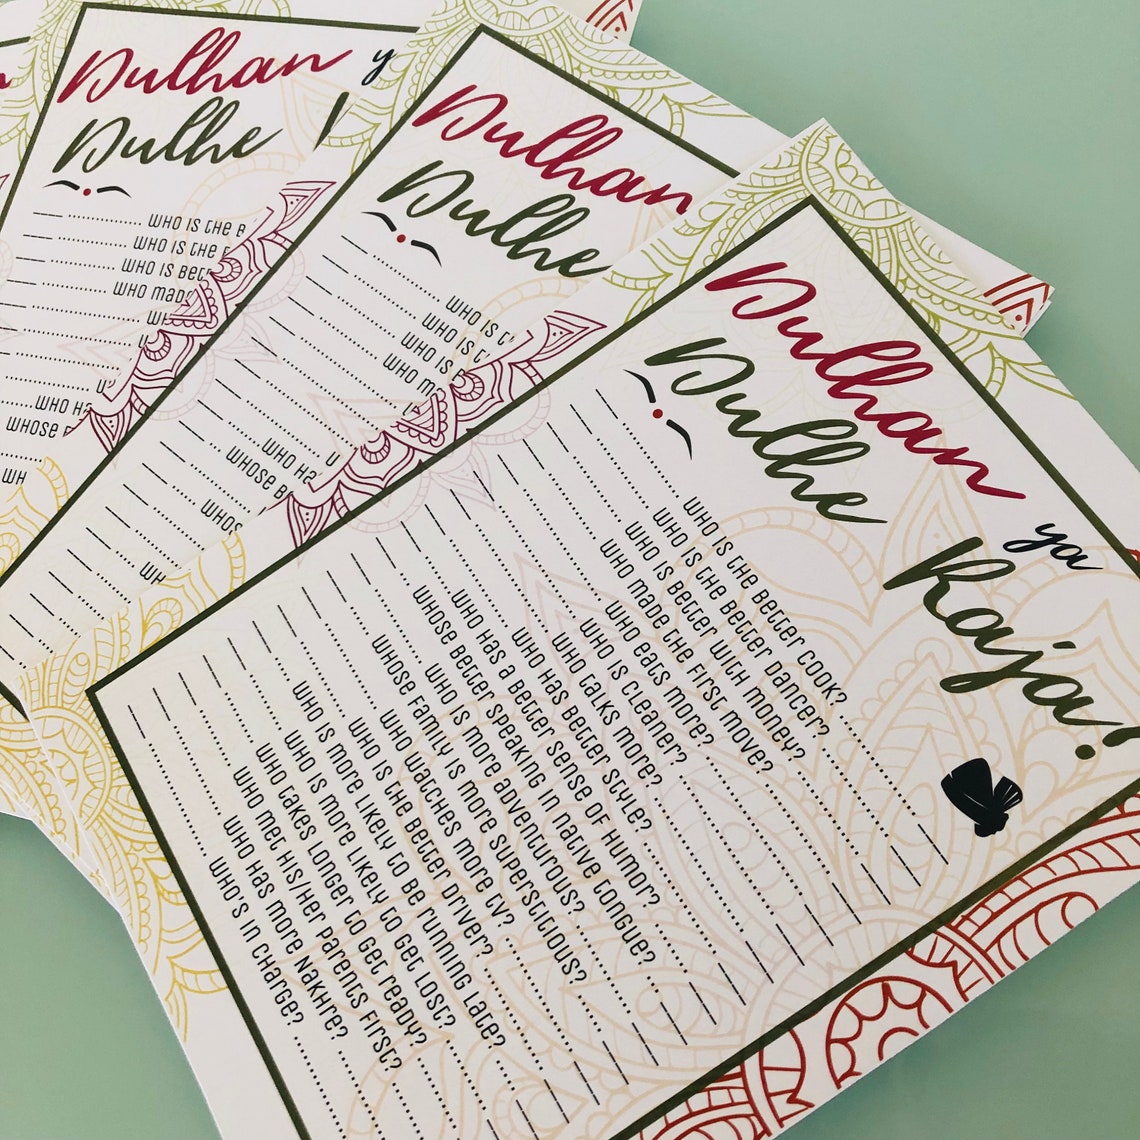 Dulhan ya
Dulhe Raja!
Who is the better cook?
Who is the better dancer?
Who is better with money?
Who made the first move?
Who eats more?
Who is cleaner?
Who talks more?
Who has better style?
Who has a better sense of humor?
Whose better speaking in native tongue?
Who is more adventurous?
Whose family is more superstitious?
Who watches more TV?
Who is the better driver?
Who is more likely to be running late?
Who is more likely to get lost?
Who takes longer to get ready?
Who met his/her parents first?
Who has more nakhre?
Who's in charge?
Dulhan
Dulhe
Who is
Who is
Who is
Who
Who
Whose
Dulhan
Dulhe
Who is the
Who is the
Who is
Who made
Who
Whose